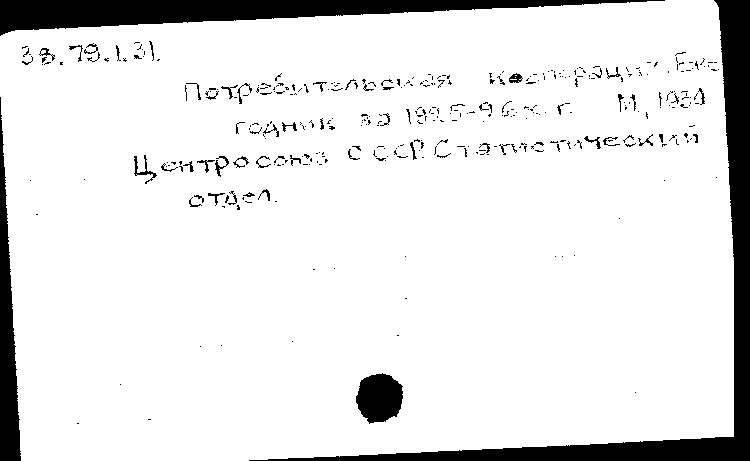 38.79.1.31.
Потребительская кооперация. Еже
годник за 1925-26 х. г. М, 1930
Центросоюз СССР. Статистический
отдел.